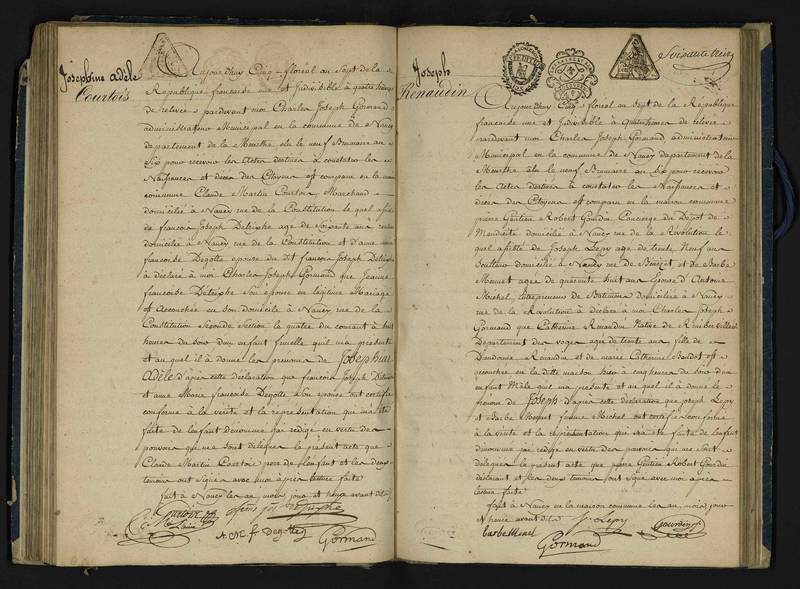 Josephine adèle
Courtois
Aujourdhuy Cinq floréal au Sept de la
Republique francaise une et Indivisible à quatre heures
de relevée pardevant moi Charles Joseph Gormand
administrateur Municipal en la commune de Nancy
departement de la Meurthe élu le neuf Brumaire an
Six pour recevoir les Actes destinés à constater les
Naissances et décès des Citoyens est comparu en la
commune Claude Martin Courtois Marchand
domicilié à Nancy rue de la Constitution le quel assisté
de francois Joseph Detriphe age de soixante ans
domicilié à Nancy rue de la Constitution et d'anne marie
francoise Degotte epouse du dit francois Joseph
à déclaré à moi Charles Joseph Gormand que Jeanne
francoise Detriphe son épouse en légitime Mariage
est accouchée en son domicile à Nancy rue de la
Constitution Seconde Section le quatre du courant à huit
heures du soir d'un enfant femelle quil ma présenté
et au quel il à donné les prénoms de Josephine
Adèle d'après cette déclaration que francois Joseph
et anne Marie francoise Degotte son épouse ont certifié
conforme à la verité et la représentation qui ma été
faite de l'enfant denommé jai rédigé en vertu des
pouvoirs qui me sont délégués le présent acte que
Claude Martin Courtois pere de l'enfant et les deux
temoins ont signé avec moi après lecture faite
fait à Nancy les an, mois jour et heure avant dits
A M f Degotte
Gormand
Joseph
Renaudin
Soixante treize
Aujourdhuy Cinq floréal au Sept de la République
francaise une et Indivisible à quatre heures de relevée
pardevant moi Charles Joseph Gormand administrateur
Municipal en la commune de Nancy departement de la
Meurthe élu le neuf Brumaire an Six pour recevoir
les Actes destinés à constater les Naissances et
décès des Citoyens est comparu en la maison commune
pierre Gentien Robert Gourdin Concierge du Dépot de
Mendicité domicilié à Nancy rue de la Révolution le
quel assisté de Joseph Lepy age de trente Neuf ans
domicilié à Nancy rue de et de Barbe
agée de quarante huit ans épouse d'Antoine
Michel, entrepreneur de Batimens domiciliés à Nancy
rue de la Révolution à déclaré à moi Charles Joseph
Gormand que Catherine Renaudin Native de
Departement des Vosges agé de trente ans fille de
Renaudin et de marie Catherine est
accouchée en la dite maison hier à cinq heures du soir d'un
enfant Mâle quil ma présenté et au quel il à donné le
prénom de Joseph d'après cette déclaration que joseph Lepy
et Barbe femme Michel ont certifié conforme
à la verité et la représentation qui ma été faite de l'enfant
denommé jai rédigé en vertu des pouvoirs qui me sont
délégués le présent acte que pierre Gentien Robert Gourdin
déclarant et les deux temoins ont signé avec moi après
lecture faite
fait à Nancy en la maison commune les an, mois jour
et heure avant dits
J. Lepy
Gourdin
Gormand